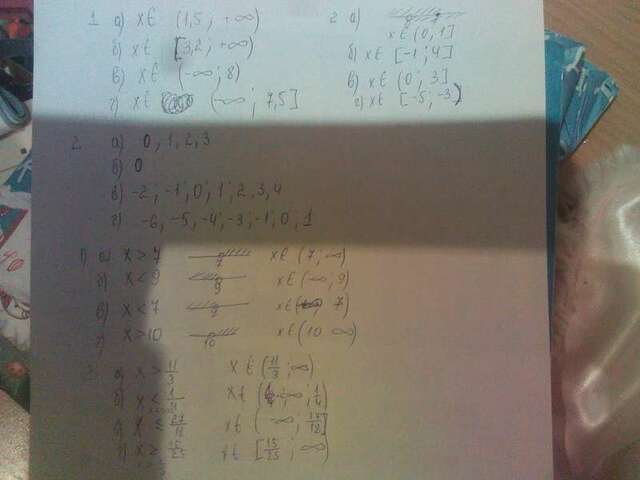 1 а) x∈ (1,5; +∞)
б) x∈ [3,2; +∞)
в) x∈ (-∞; 8)
г) x∈ (-∞; 7,5]
2 а)
x∈ (0; 1]
б) x∈ [-1; 4]
в) x∈ (0; 3]
г) x∈ [-5; -3)
2. а) 0, 1, 2, 3
б) 0
в) -2; -1; 0; 1; 2, 3, 4
г) -6, -5, -4; -3; -1; 0; 1
1) а) x > 7 7 x∈ (7; ∞)
б) x < 9 9 x∈ (-∞, 9)
в) x < 7 x∈ 7)
г) x > 10 10 x∈ (10 ∞)
3 а) x > 11/3 x∈ (11/3; ∞)
б) x < x∈ -∞; 1/4)
x ≤ 27/12 x∈ (-∞;
x > x∈ [15/25; ∞)